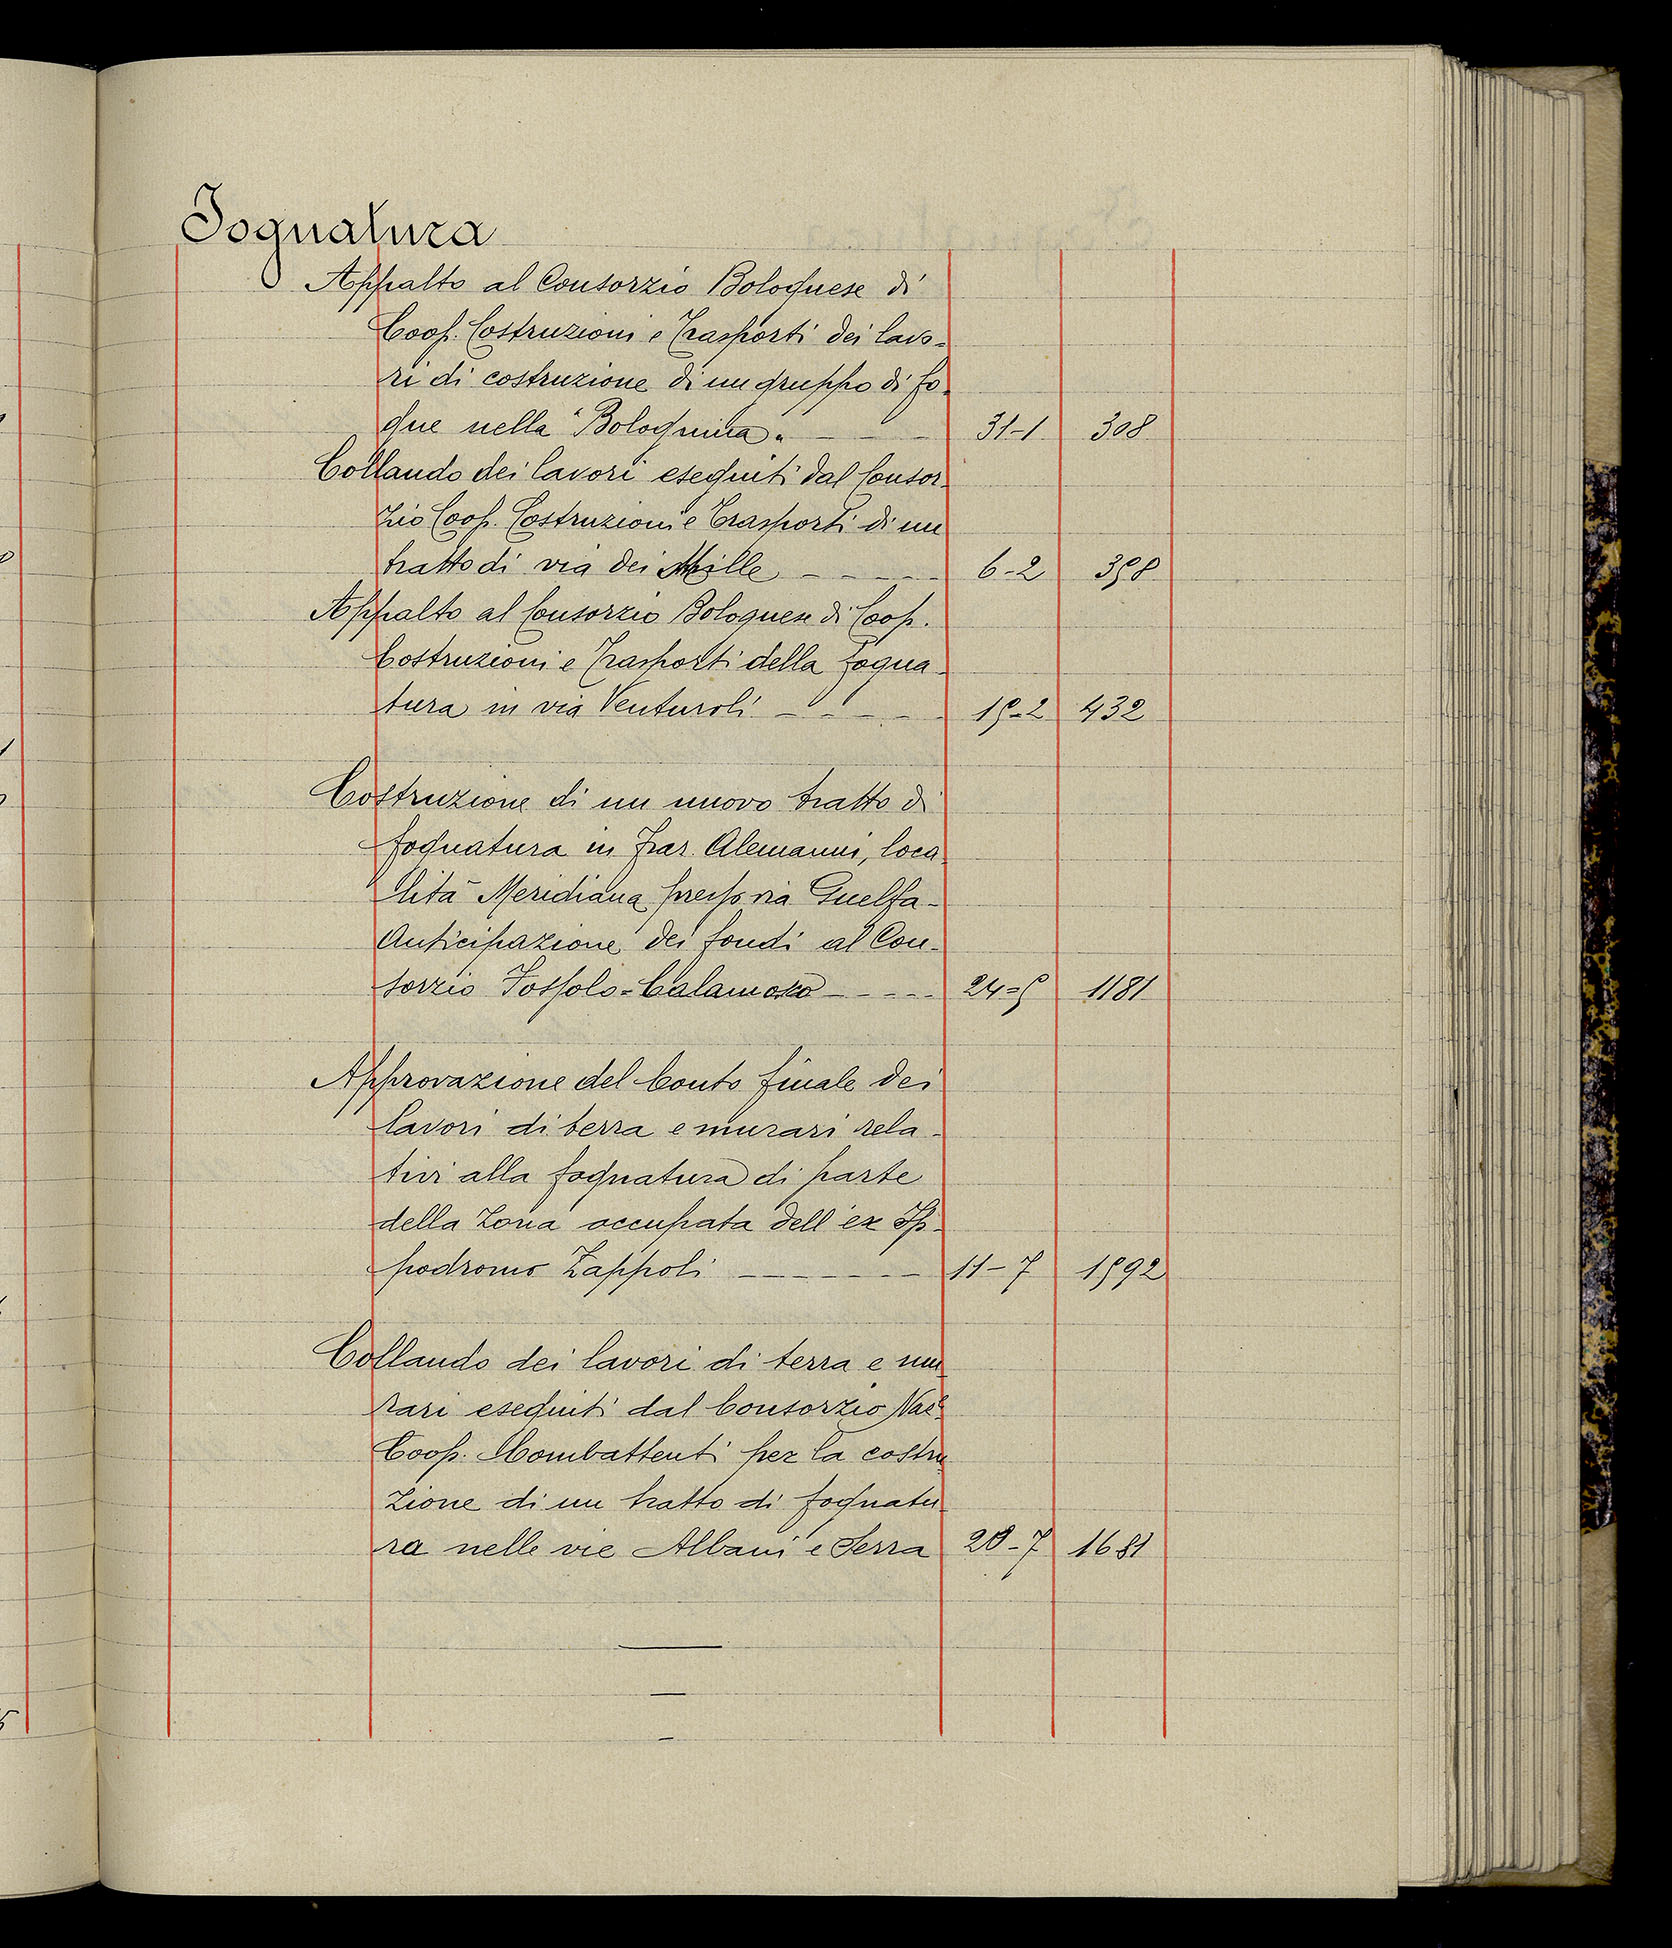 Fognatura
Appalto al Consorzio Bolognese di
Coop. Costruzioni e Trasporti dei lavo-
ri di costruzione di un gruppo di fo-
gne nella "Bolognina" 31-1 308
Collaudo dei lavori eseguiti dal Consor-
zio Coop. Costruzioni e Trasporti di un
tratto di via dei Mille 6-2 358
Appalto al Consorzio Bolognese di Coop.
Costruzioni e Trasporti della fogna-
tura in via Venturoli 15-2 432
Costruzione di un nuovo tratto di
fognatura in fraz. Alemanni, loca-
lità Meridiana presso via Guelfa-
Anticipazione dei fondi al Con-
sorzio Fossolo-Calamosco 24-5 1181
Approvazione del Conto finale dei
lavori di terra e murari rela-
tivi alla fognatura di parte
della zona occupata dell'ex Ip-
podromo Zappoli 11-7 1592
Collaudo dei lavori di terra e mu-
rari eseguiti dal Consorzio Naz.
Coop. Combattenti per la costru-
zione di un tratto di fognatu-
ra nelle vie Albani e Serra 20-7 1681